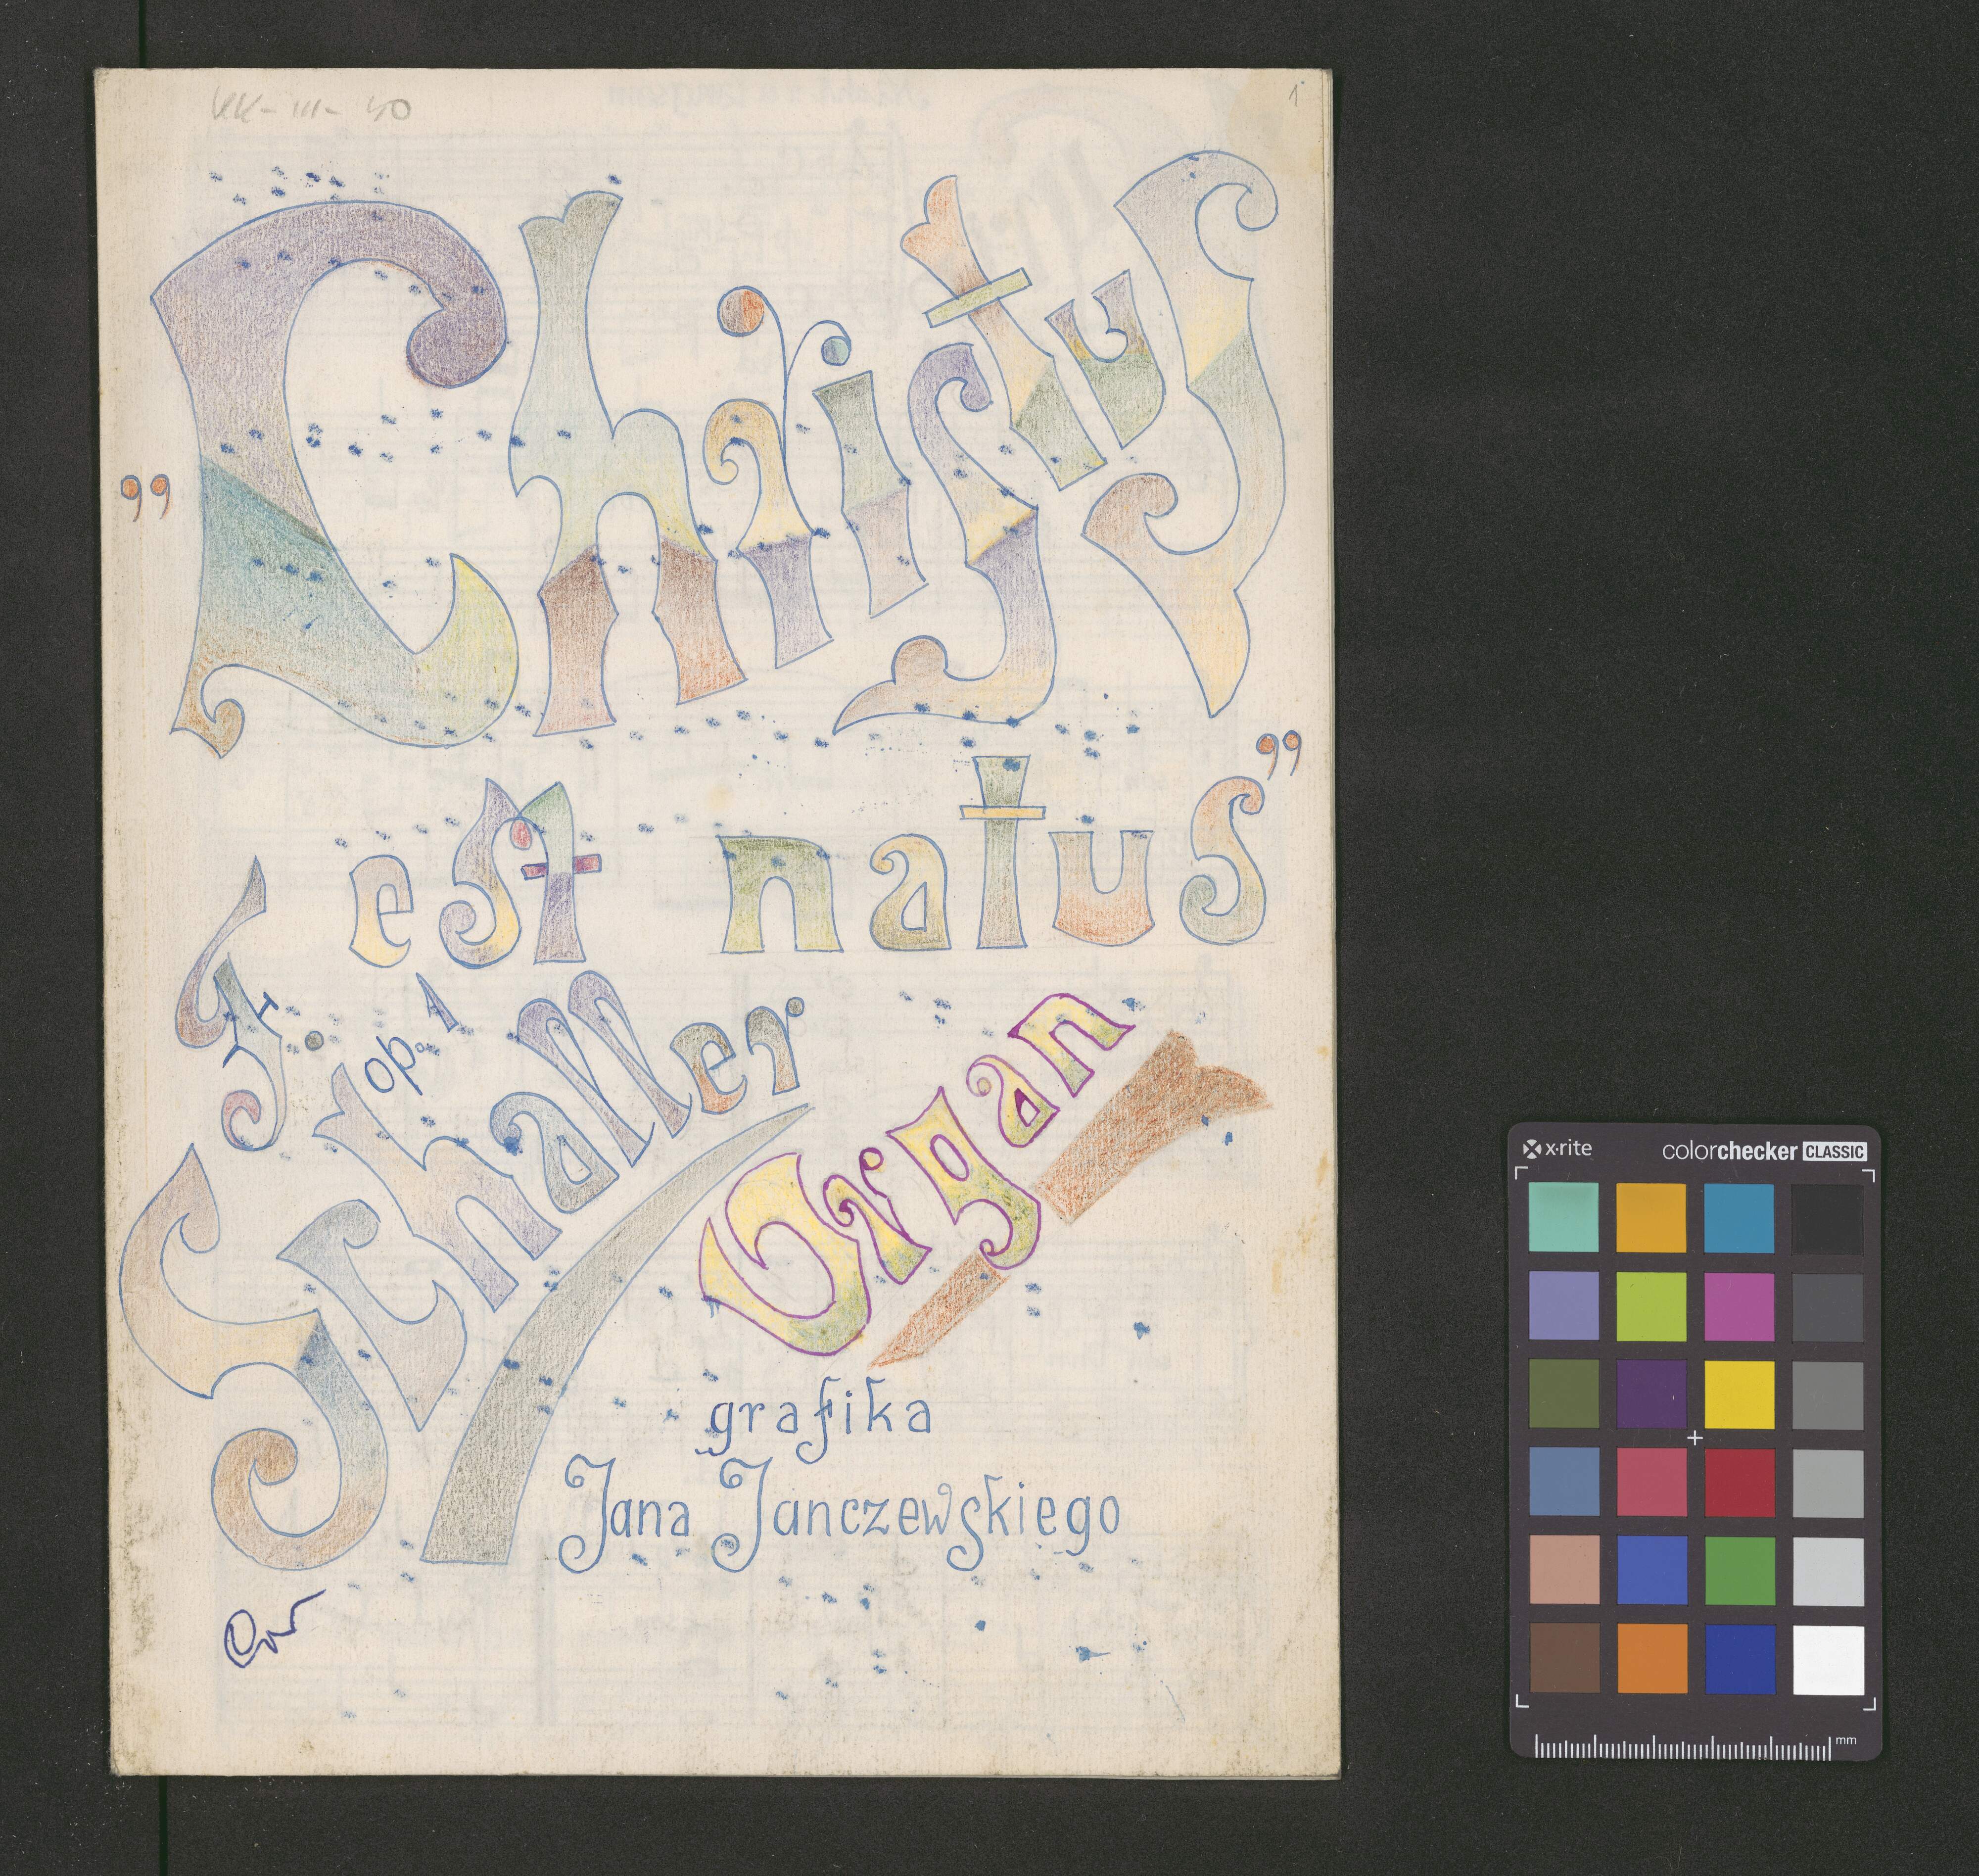 KK-III-40
1
"Christus
est natus"
F. Schaller
op. 1
Organ
grafika
Jana Janczewskiego
x·rite colorchecker CLASSIC
mm